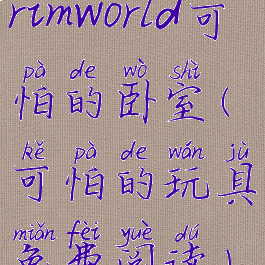 rimworld可
pà de wò shì
怕的卧室(
kě pà de wán jù
可怕的玩具
miǎn fèi yuè dú
免费阅读)